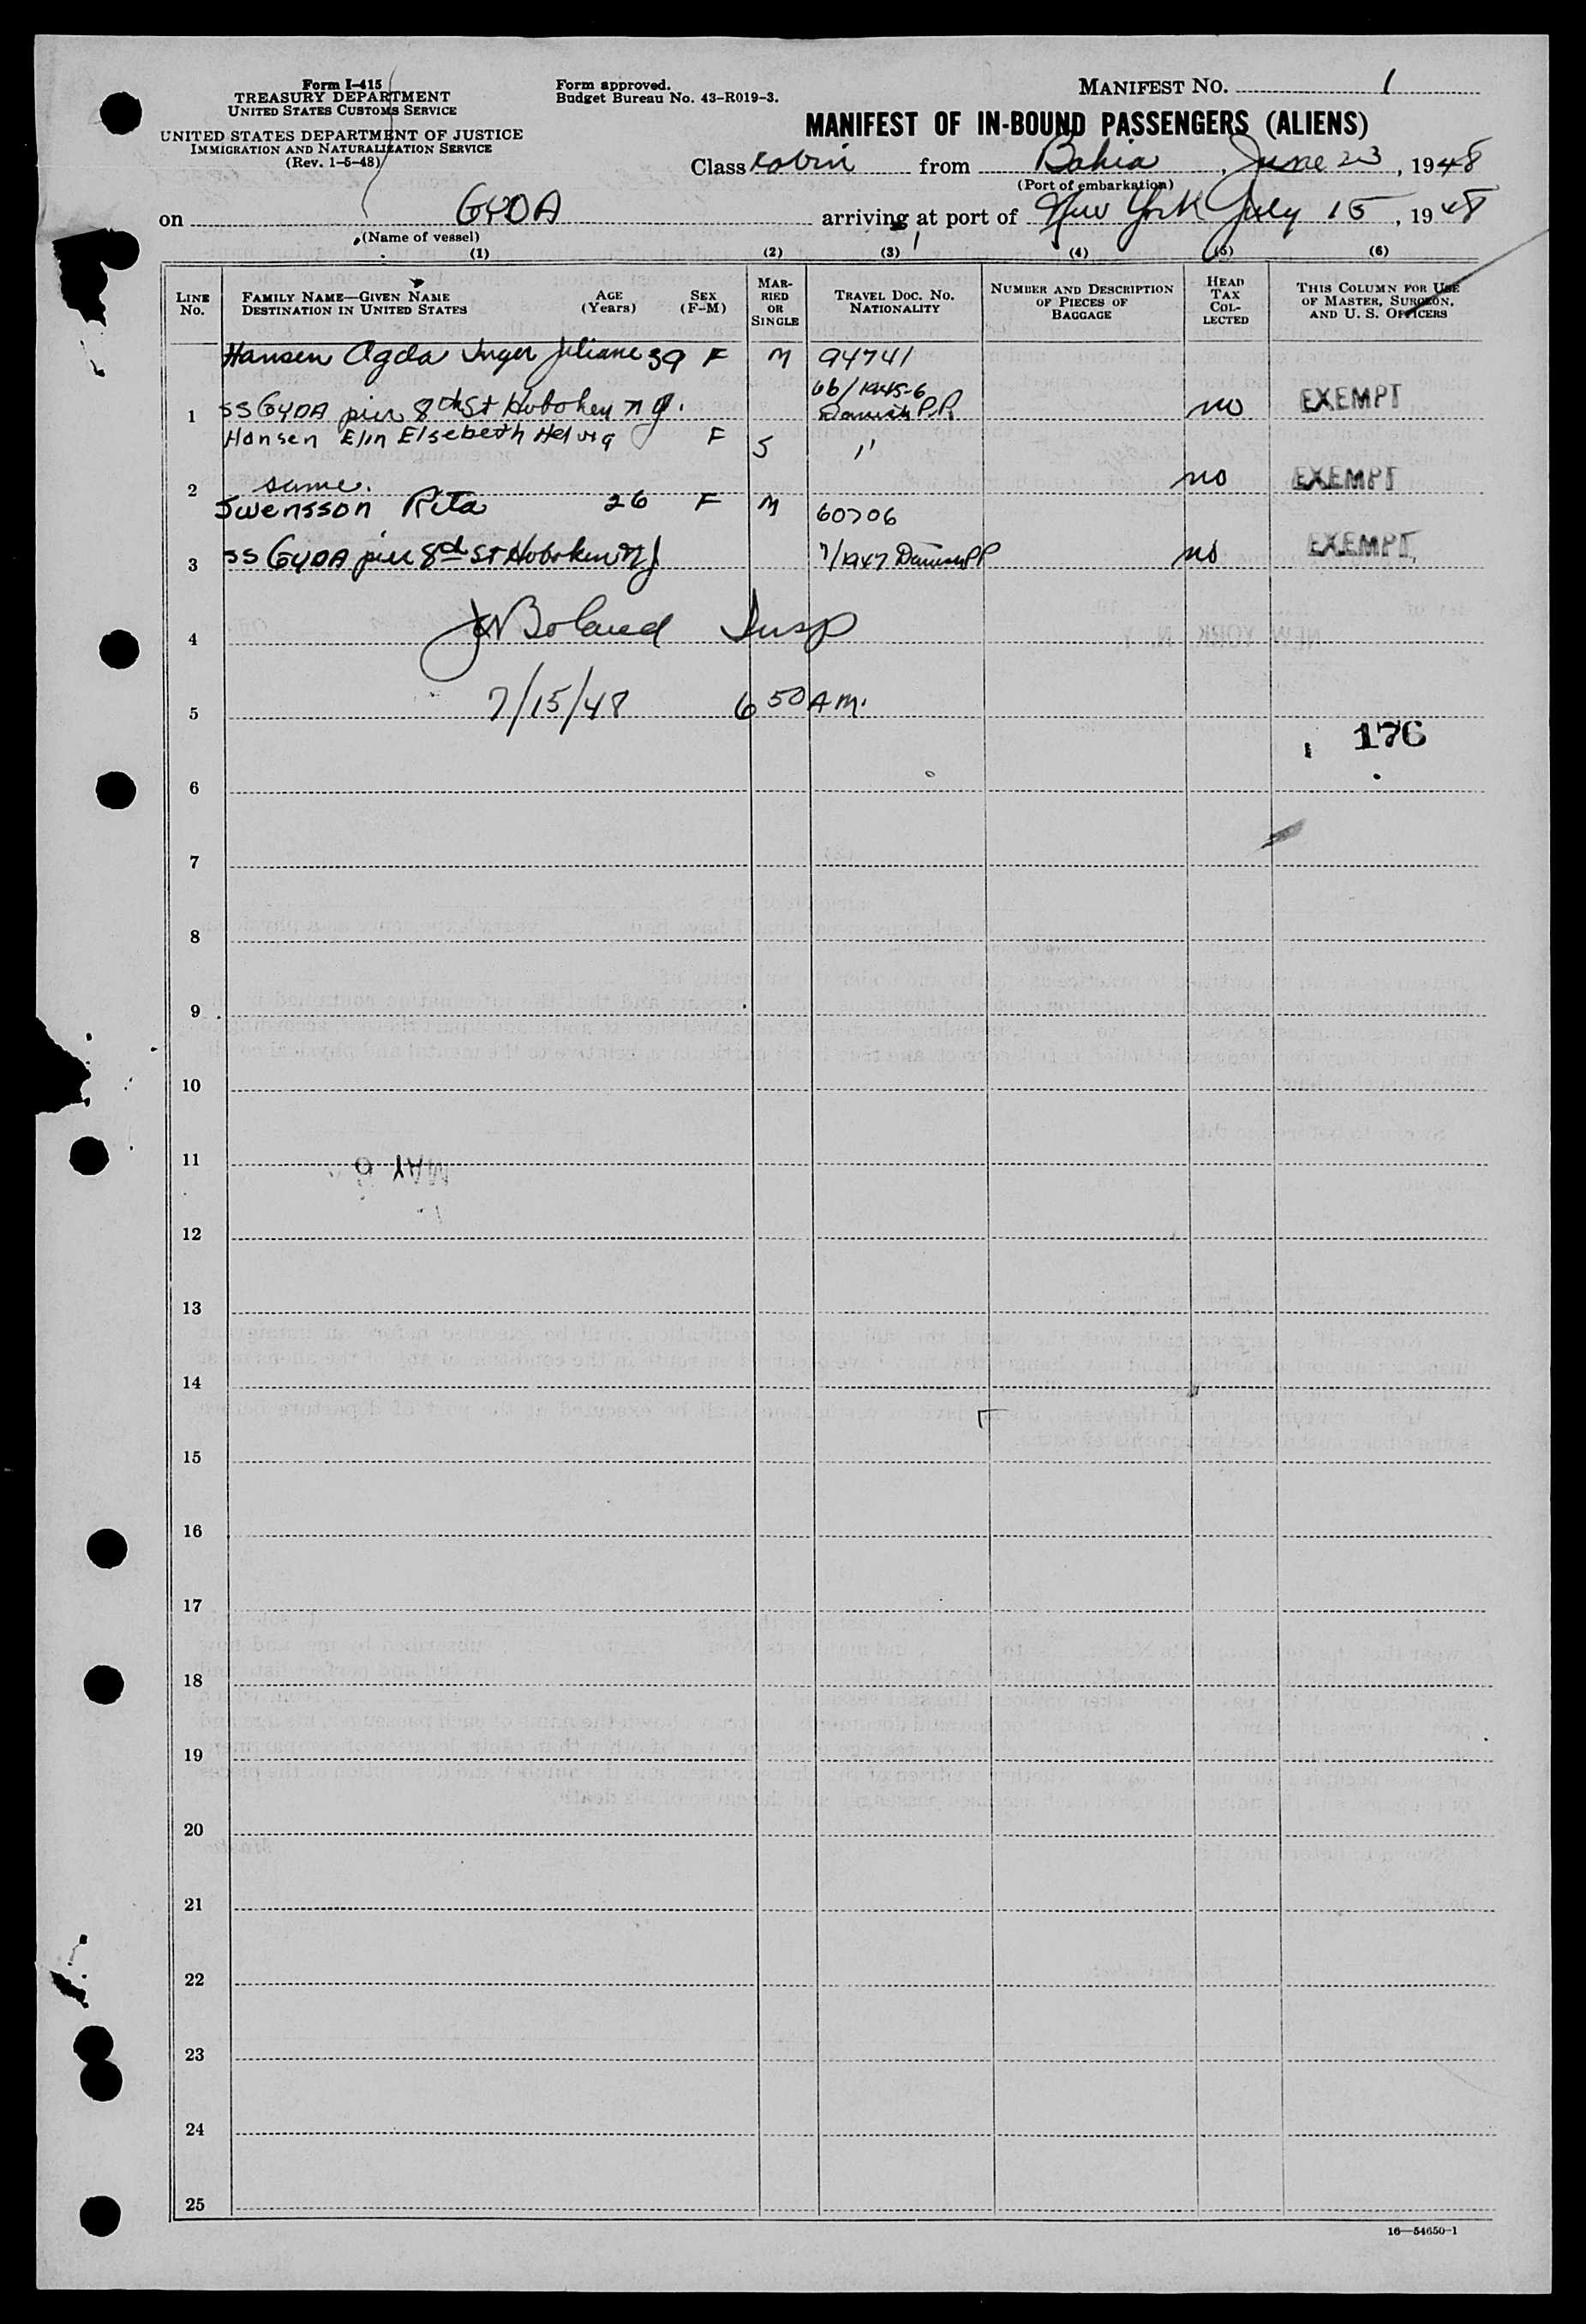 Form I-415
TREASURY DEPARTMENT
UNITED STATES CUSTOMS SERVICE
UNITED STATES DEPARTMENT OF JUSTICE
IMMIGRATION AND NATURALIZATION SERVICE
(Rev. 1-5-48)
Form approved.
Budget Bureau No. 43-R019-3.
MANIFEST NO. 1
MANIFEST OF IN-BOUND PASSENGERS (ALIENS)
Class from Bahia, June 23, 1948
(Port of embarkation)
on GYDA arriving at port of New York July 15, 1948
(Name of vessel)
(1) (2) (3) (4) (5) (6)
LINE No. FAMILY NAME—GIVEN NAME DESTINATION IN UNITED STATES AGE (Years) SEX (F-M) MARRIED OR SINGLE TRAVEL DOC. NO. NATIONALITY NUMBER AND DESCRIPTION OF PIECES OF BAGGAGE HEAD TAX COLLECTED THIS COLUMN FOR USE OF MASTER, SURGEON, AND U. S. OFFICERS
Hansen Agda Inger Juliane 39 F M 94741
1 SS GYDA pier 8th St Hoboken N.J. Danish P.P. no EXEMPT
Hansen Elin Elsebeth Helvig F S "
2 same. no EXEMPT
Swensson Rita 26 F M 60706
3 SS GYDA pier 8th St Hoboken NJ 7/1947 Danish PP no EXEMPT
4 Boland Insp
5 7/15/48 6 50 AM.
176
6
7
8
9
10
11 MAY
12
13
14
15
16
17
18
19
20
21
22
23
24
25
16—54650-1